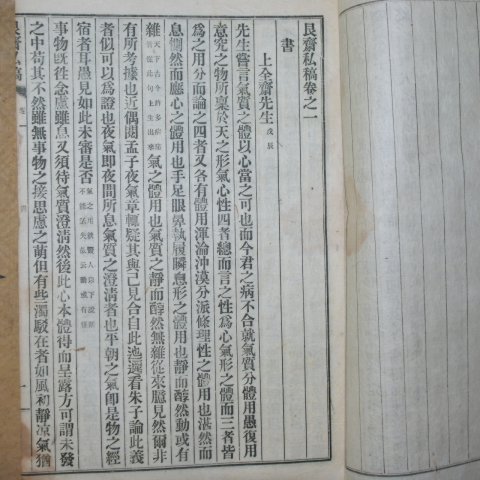 艮齋私稿卷之一
書
上全齋先生 戊辰
先生嘗言氣質之體以心當之可也而今君之病不合就氣質分體用愚復用
意究之物所稟於天之形氣心性四者總而言之性爲心氣形之體而三者皆
爲之用分而論之四者又各有體用渾淪沖漠分派條理性之體用也湛然而
息惻然而應心之體用也手足眼鼻執履瞬息形之體用也靜而醇然動或有
雜 天下古今許多病痛皆從此句上生出來 氣之體用也氣質之靜而醇然無雜從來臆見然爾非
有所考據也近偶閱孟子夜氣章輒疑其與己見合自此迤邐看朱子論此義
者似可以爲證也夜氣卽夜間所息氣質之澄清者也平朝之氣卽是物之經
宿者耳愚見如此未審是否
事物旣往念慮雖息又須待氣質澄清然後此心本體得而呈露方可謂未發
之中苟其不然雖無事物之接思慮之萌但有些濁駁在者如風初靜凉氣猶
艮齋私稿
卷一
一